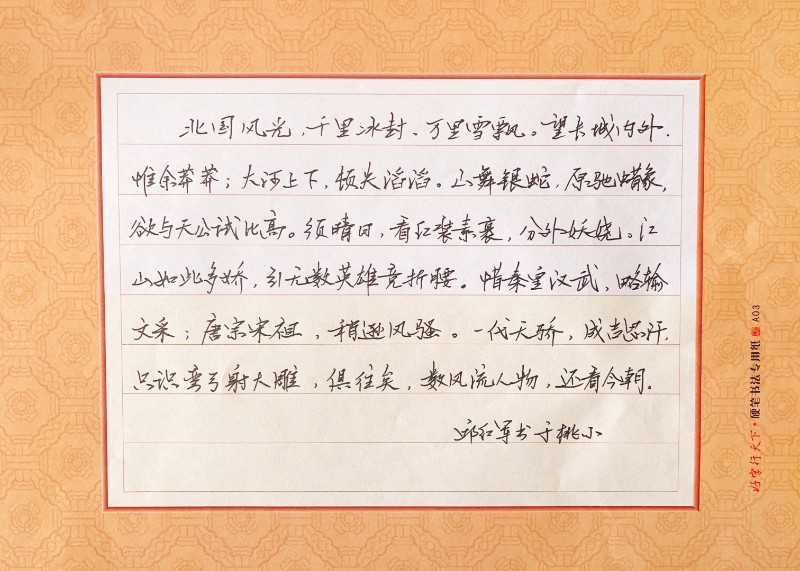 北国风光，千里冰封、万里雪飘。望长城内外，
惟余莽莽；大河上下，顿失滔滔。山舞银蛇，原驰蜡象，
欲与天公试比高。须晴日，看红装素裹，分外妖娆。江
山如此多娇，引无数英雄竞折腰。惜秦皇汉武，略输
文采；唐宗宋祖，稍逊风骚。一代天骄，成吉思汗，
只识弯弓射大雕，俱往矣，数风流人物，还看今朝。
邱红军书于桃小
好字行天下·硬笔书法专用纸 A03